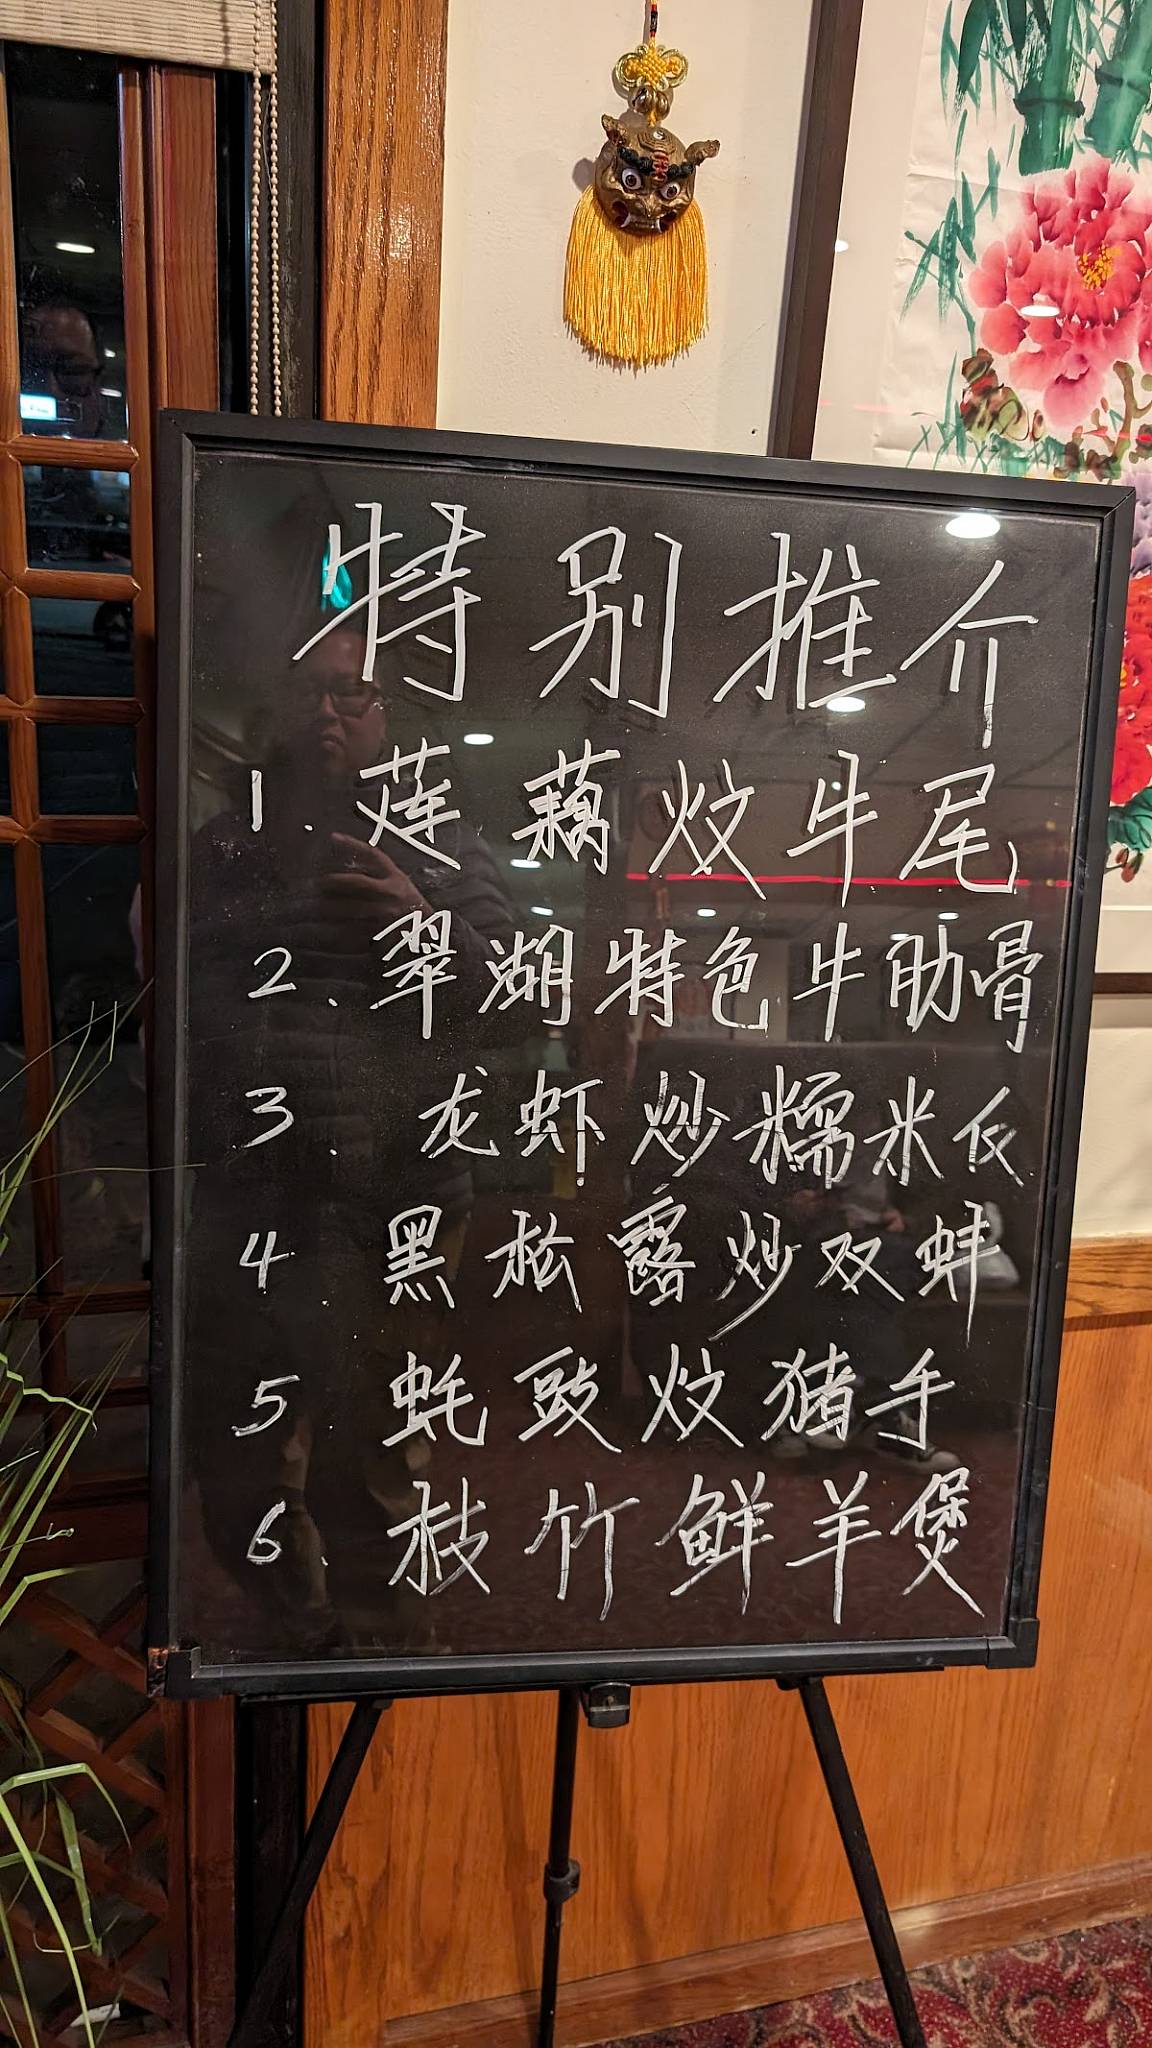 特别推介
1. 莲藕炆牛尾
2. 翠湖特色牛肋骨
3. 龙虾炒糯米仮
4. 黑松露炒双蚌
5. 蚝豉炆猪手
6. 枝竹鲜羊煲